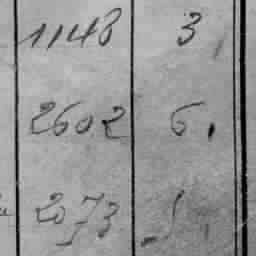 1148 3
2602 6.
2073